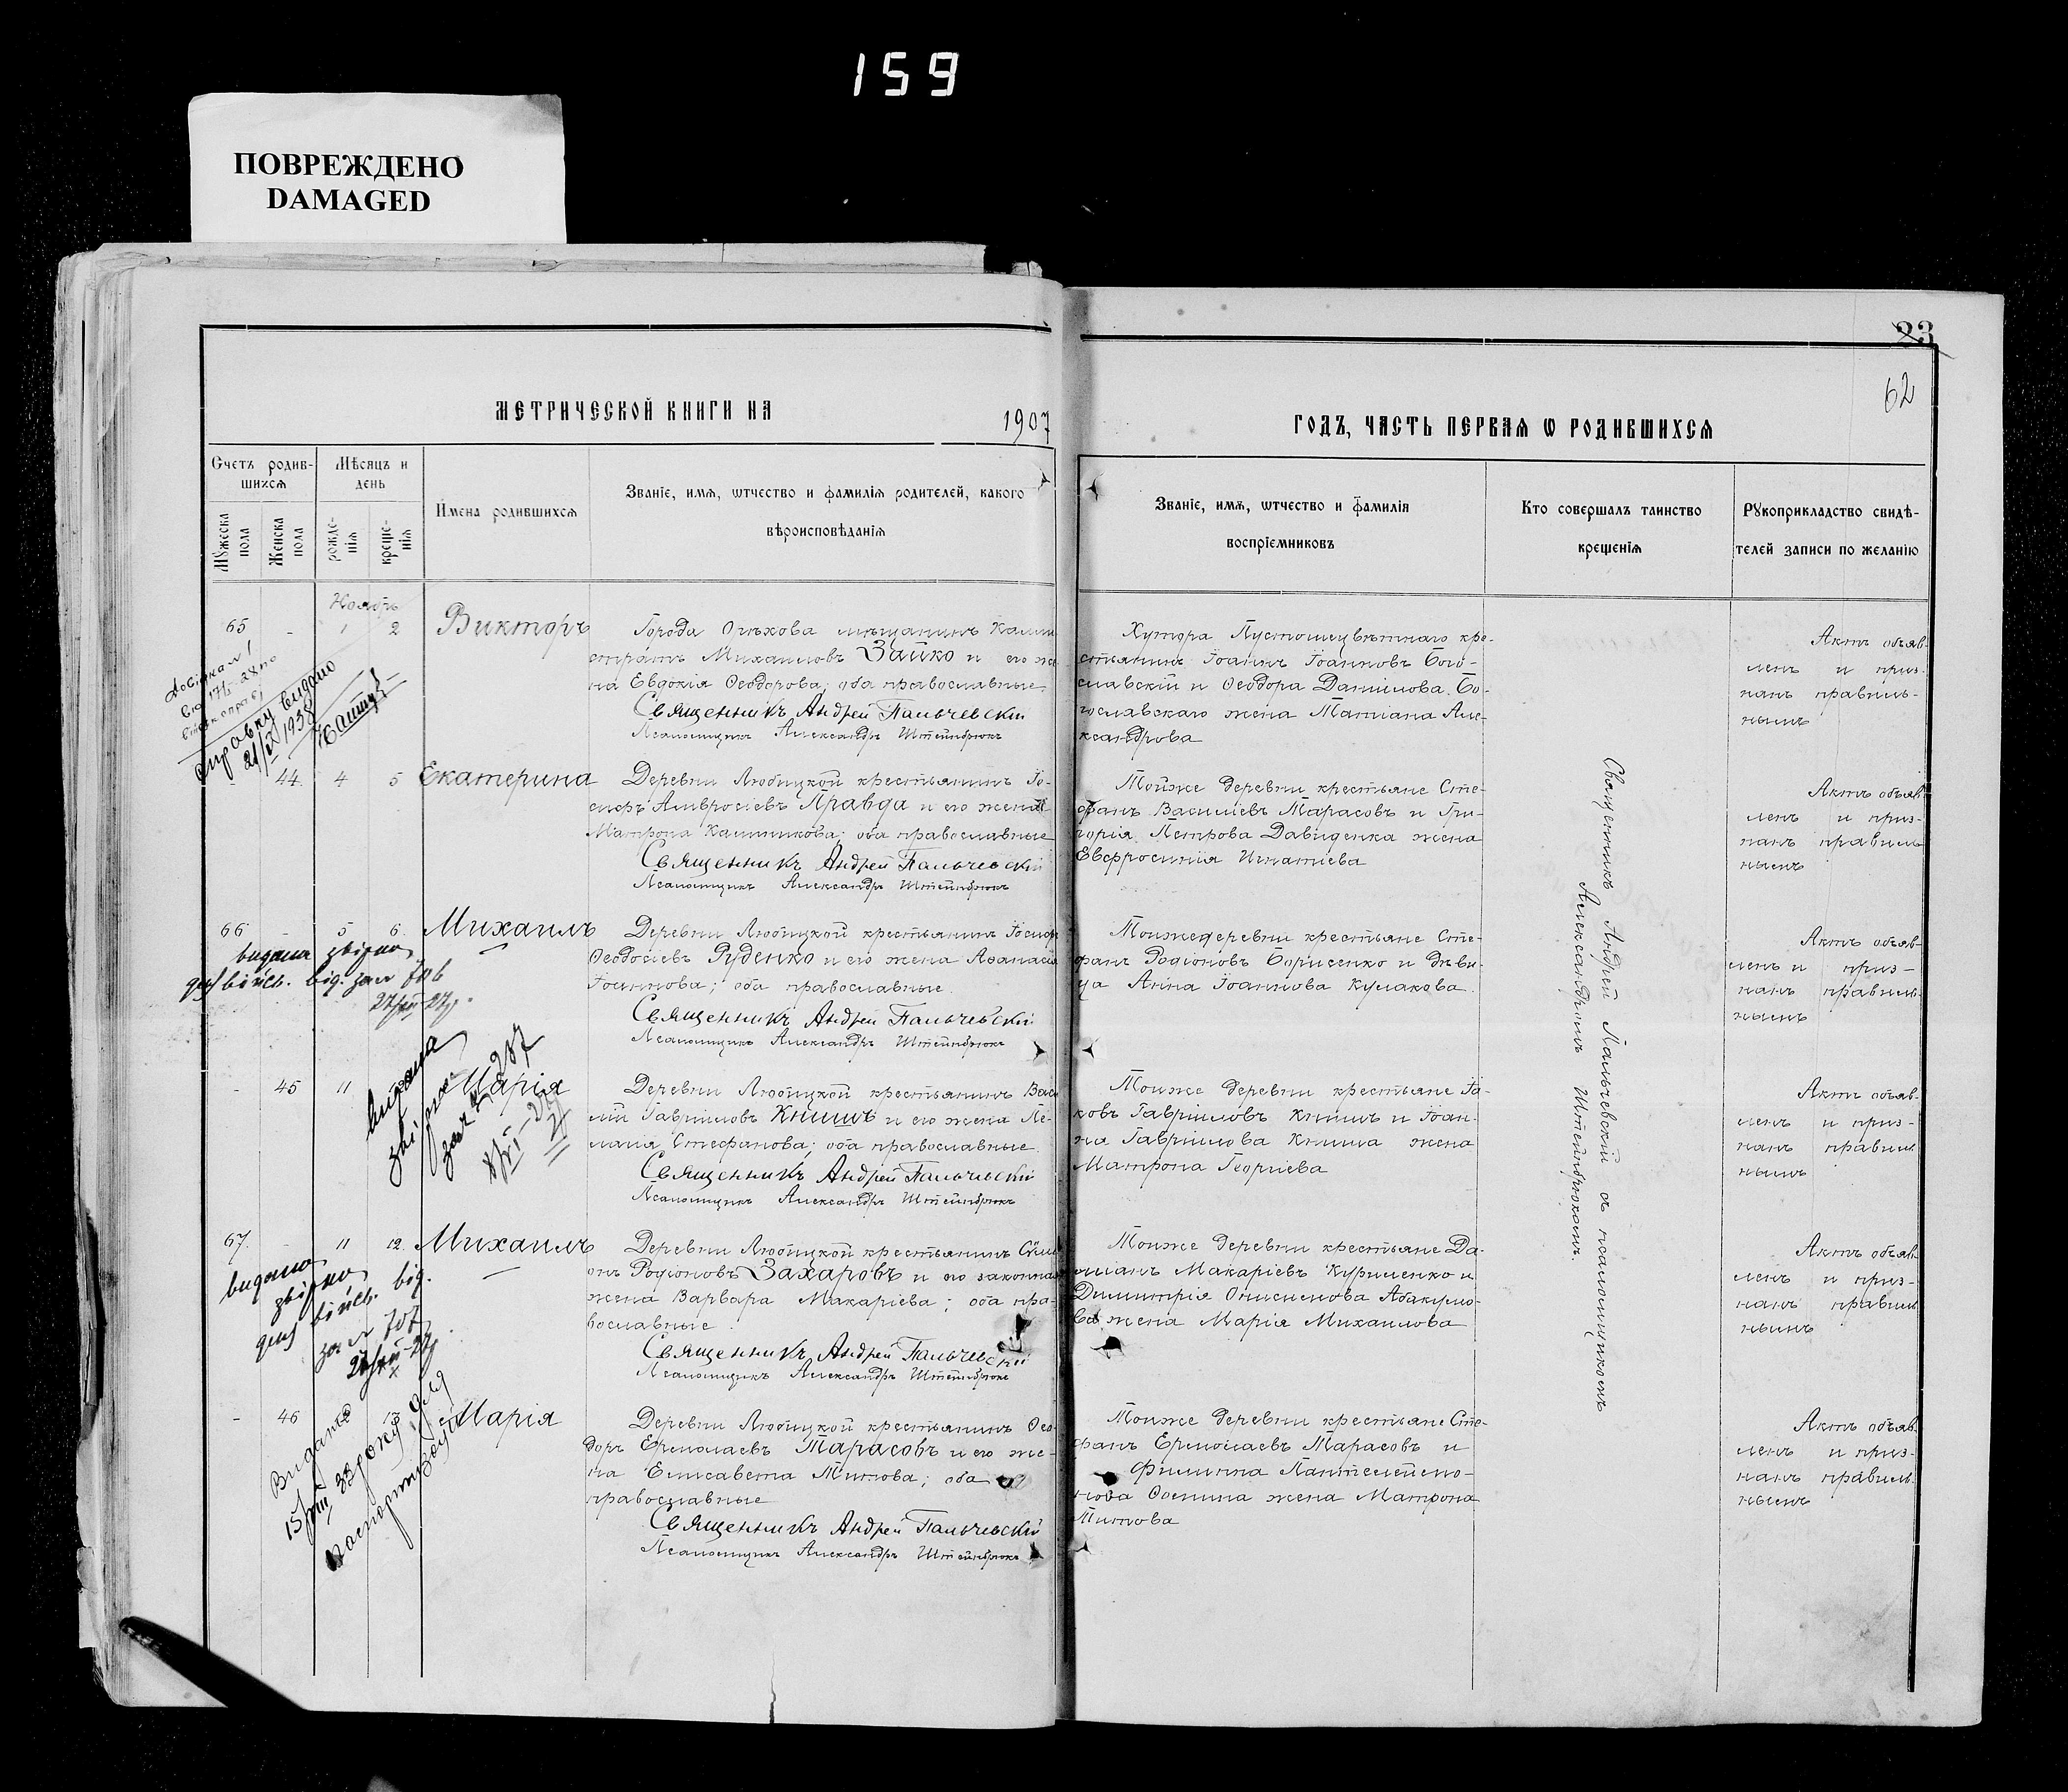 159
ПОВРЕЖДЕНО
DAMAGED
23
62
МЕТРИЧЕСКОЙ КНИГИ НА 1907
ГОДЪ, ЧАСТЬ ПЕРВАЯ Ѡ РОДИВШИХСЯ
Счетъ родившихся
Мужеска пола
Женска пола
Мѣсяцъ и день
рожденія
крещенія
Имена родившихся
Званіе, имя, ѡтчество и фамилія родителей, какого
вѣроисповѣданія
Званіе, имя, ѡтчество и фамилія
воспріемниковъ
Кто совершалъ таинство
крещенія
Рукоприкладство свидѣ-
телей записи по желанію
Ноябрь
65 - 1 2 Викторъ
Города Орѣхова мѣщанинъ Калли
стратъ Михаиловъ Зайко и его же
на Евдокія Ѳеодорова; оба православные
Священникъ Андрей Пальчевскій
Псаломщикъ Александръ Штейнбрюкъ
Хутора Пустошецвѣтнаго кре-
стьянинъ Іоаннъ Іоанновъ Бого-
славскій и Ѳеодора Даніилова Бо-
гославскаго жена Татіана Але-
ксандрова
Актъ объяв-
ленъ и приз-
нанъ правиль-
нымъ
справку видано
21/X 1938
- 44 4 5 Екатерина
Деревни Любицкой крестьянинъ Іо-
сифъ Амвросіевъ Правда и его жена
Матрона Каллиникова; оба православные
Священникъ Андрей Пальчевскій
Псаломщикъ Александръ Штейнбрюкъ
Тойже деревни крестьяне Сте-
фанъ Василіевъ Тарасовъ и Гри-
горія Петрова Давиденка жена
Евфросинія Игнатіева
Актъ объяв-
ленъ и приз-
нанъ правиль
нымъ
66 - 5 6 Михаилъ
видана збірна
для війск. від. зал
Деревни Любицкой крестьянинъ Іосифъ
Ѳеодосіевъ Руденко и его жена Аѳанасія
Іоаннова; оба православные
Священникъ Андрей Пальчевскій
Псаломщикъ Александръ Штейнбрюкъ
Тойжедеревни крестьяне Сте-
фанъ Родіоновъ Борисенко и дѣви-
ца Анна Іоаннова Кулакова
Актъ объяв-
ленъ и приз-
нанъ правиль-
нымъ
- 45 11 Марія
видана
Деревни Любицкой крестьянинъ Васи
лій Гавріиловъ Книшъ и его жена Пе-
лагія Стефанова; оба православные
Священникъ Андрей Пальчевскій
Псаломщикъ Александръ Штейнбрюкъ
Тойже деревни крестьяне Іа-
ковъ Гавріиловъ Книшъ и Іоан-
на Гавріилова Книша жена
Матрона Георгіева
Актъ объяв-
ленъ и приз-
нанъ правиль
нымъ
67 - 11 12 Михаилъ
видана
збірна
для війск. від.
зал 707
Деревни Любицкой крестьянинъ Сѵме
онъ Родіоновъ Захаровъ и его законная
жена Варвара Макаріева; оба пра-
вославные
Священникъ Андрей Пальчевскій
Псаломщикъ Александръ Штейнбрюкъ
Тойже деревни крестьяне Да-
міанъ Макаріевъ Куриленко и
Димитрія Онисимова Абакумо-
ва жена Марія Михаилова
Актъ объяв-
ленъ и приз-
нанъ правиль
нымъ
- 46 13 Марія
Видане
15/VIII 33 року для
паспортизації
Деревни Любицкой крестьянинъ Ѳео
доръ Ермолаевъ Тарасовъ и его же-
на Елисавета Титова; оба
православные
Священникъ Андрей Пальчевскій
Псаломщикъ Александръ Штейнбрюкъ
Тойже деревни крестьяне Сте-
фанъ Ермолаевъ Тарасовъ и
Филиппа Пантелеймо-
нова жена Матрона
Титова
Актъ объяв-
ленъ и приз-
нанъ правиль-
нымъ
Священникъ Андрей Пальчевскій съ псаломщикомъ
Александромъ Штейнбрюкомъ.